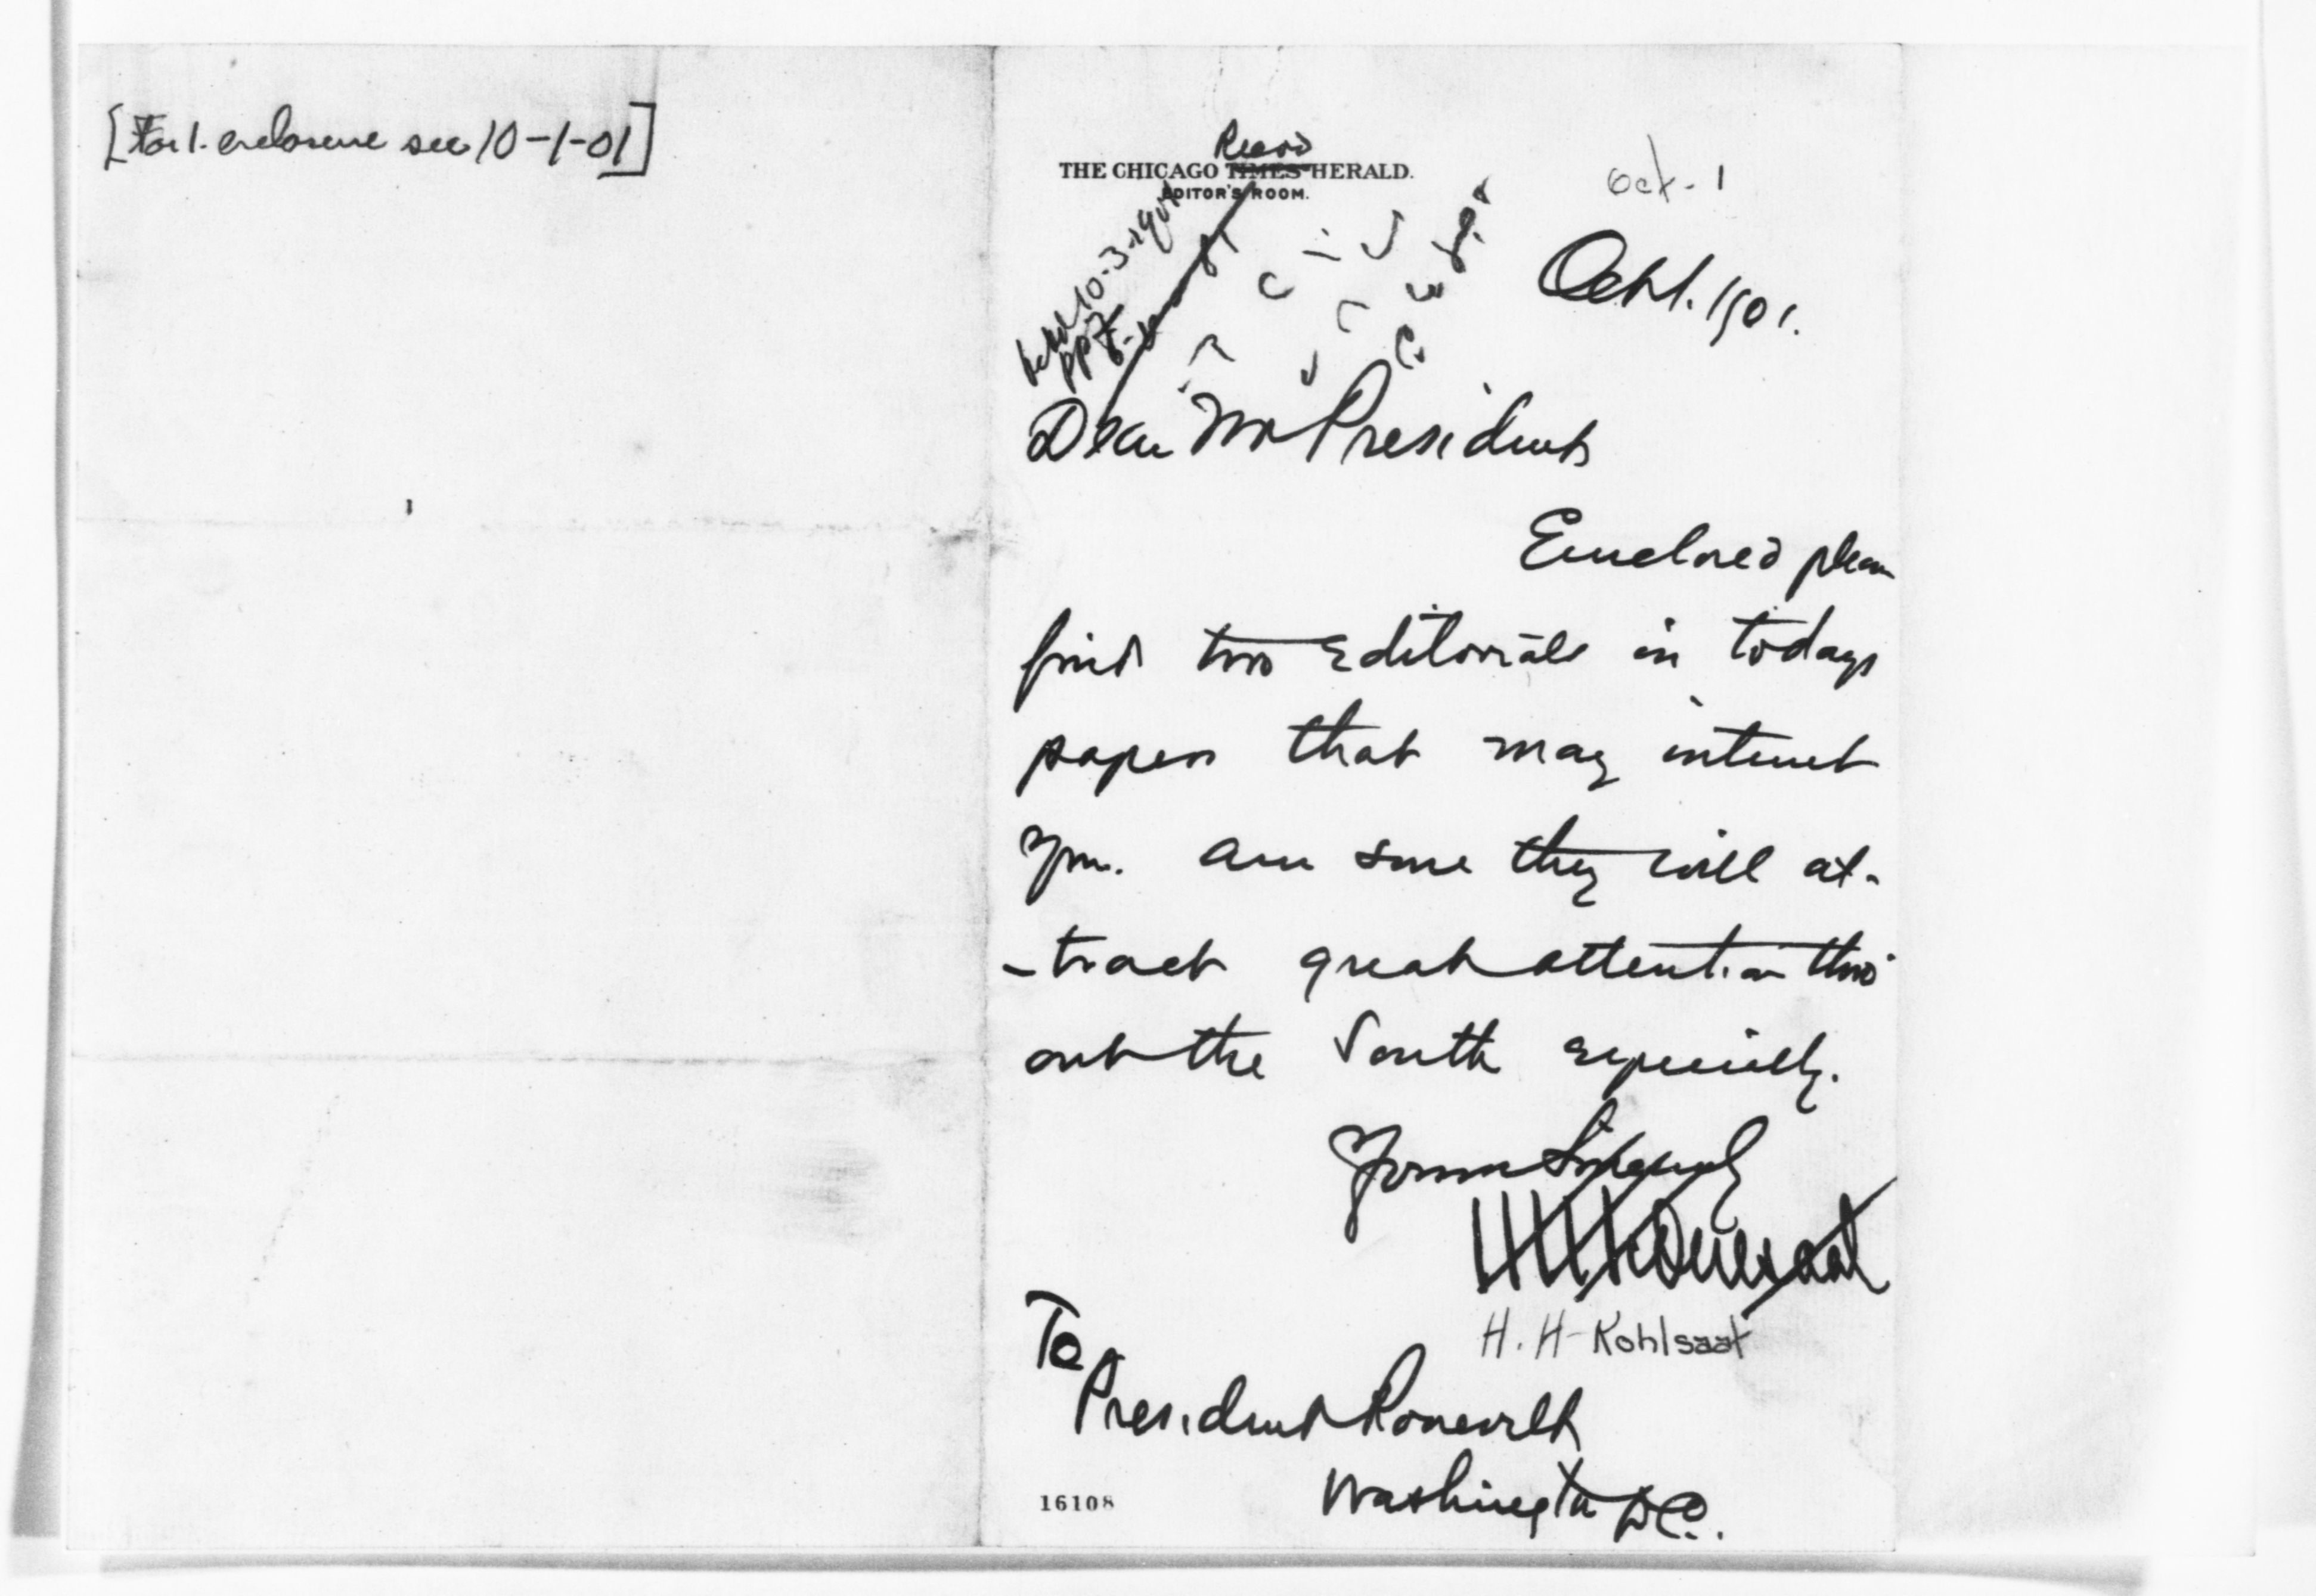 [For 1. enclosure see 10-1-01]
Record
THE CHICAGO TIMES-HERALD.
EDITOR'S ROOM.
Oct. 1
10-3-1901
PPF
Oct 1. 1901.
Dear Mr President
Enclosed please
find two editorials in todays
paper that may interest
you. Am sure they will at-
-tract great attention thro'
out the South especially.
Yours Sincerely
H H Kohlsaat
H. H. Kohlsaat
To
President Roosevelt
Washington DC.
16108